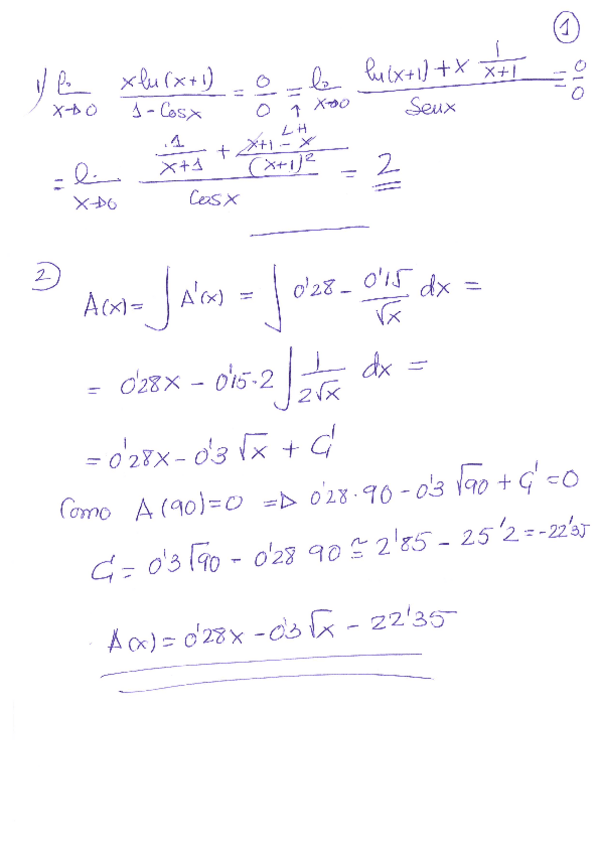 ①
1) lim x→0 x ln(x+1) / 1-Cosx = 0/0 = ↑ LH lim x→0 ln(x+1) + x 1/x+1 / Senx = 0/0
= lim x→0 1/x+1 + x+1-x/(x+1)² / Cosx = 2
② A(x) = ∫ A'(x) = ∫ 0'28 - 0'15/√x dx =
= 0'28x - 0'15·2 ∫ 1/2√x dx =
= 0'28x - 0'3 √x + C
Como A(90)=0 ⇒ 0'28·90 - 0'3 √90 + C = 0
C = 0'3 √90 - 0'28 90 ≅ 2'85 - 25'2 = -22'35
A(x) = 0'28x - 0'3 √x - 22'35